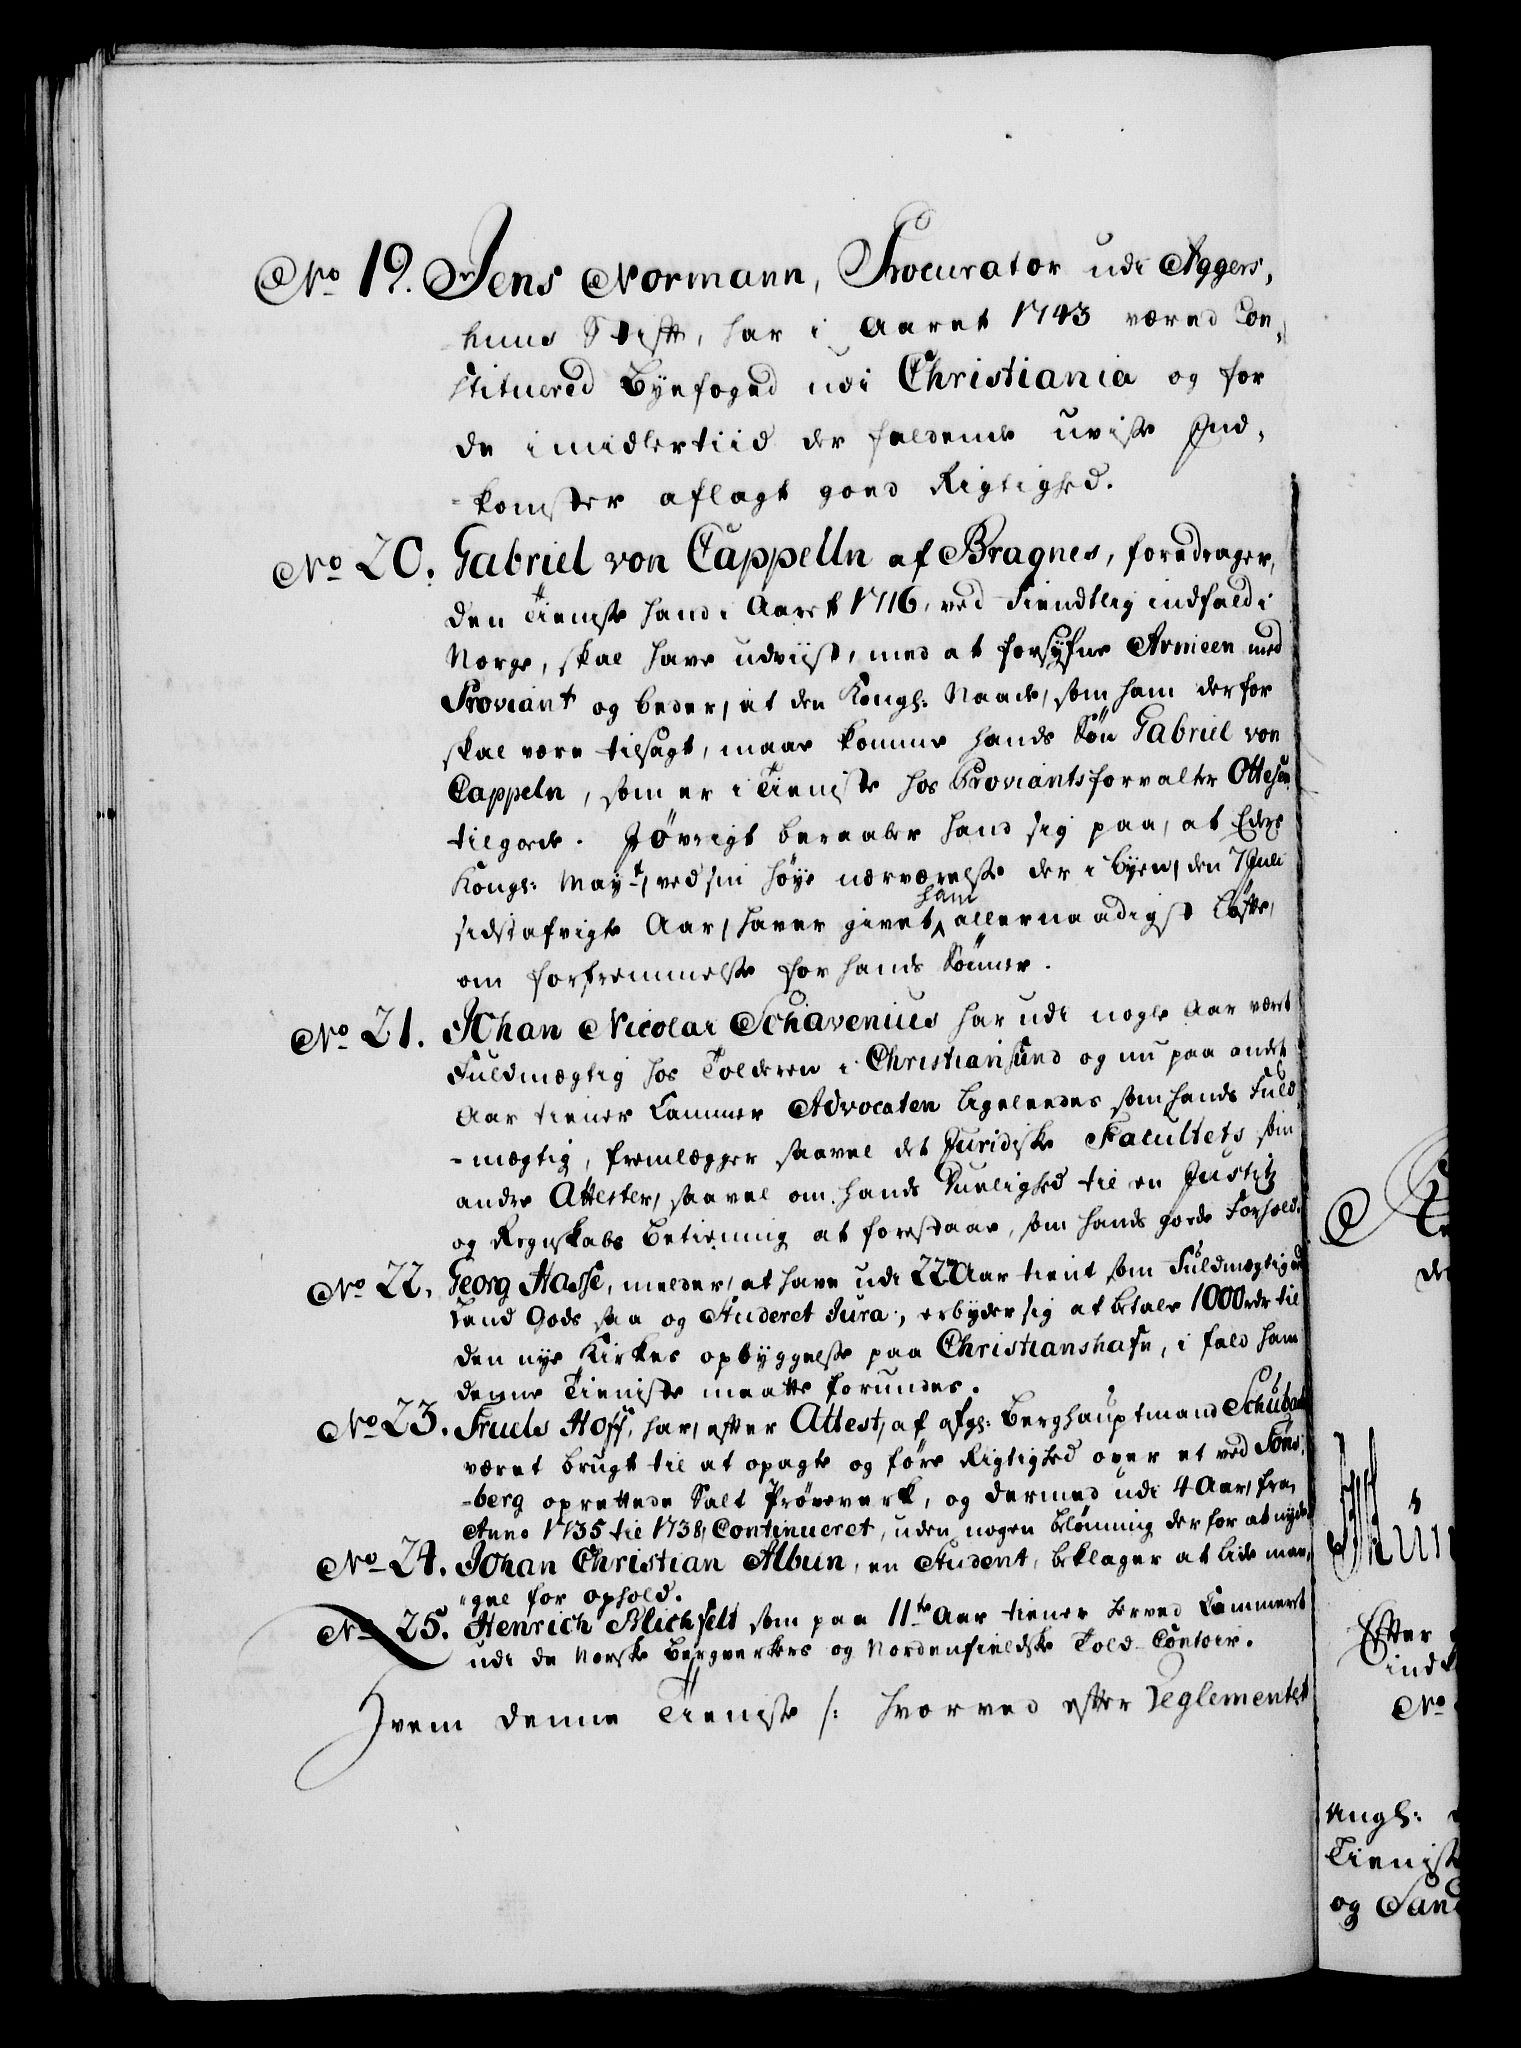 No 19. Jens Normann, Procurator udi Aggers,
huus Stift, har i Aaret 1743 væred Con,
stituered Byefoged udi Christiania og for
de imidlertiid der faldende uvisse Ind,
-komster aflagt goed Rigtighed.
No 20. Gabriel von Cappelln af Bragnes, foredrager,
den Tieniste hand i Aaret 1716, ved Fiendtlig indfald i
Norge, skal have udviist, med at forsÿfne Armeen med
Proviant og beder, at den Kongl: Naade, som ham derfor
skal være tilsagt, maae komme hands Søn Gabriel von
Cappeln, som er i Tieniste hos Proviantsforvalter Ottesen
tilgode. Jøvrigt beraaber hand sig paa, at Eders
Kongl: Mayt, ved sin høye nærværelse der i Byen, den 7 Juli
sidstafvigte Aar, haver givet ham allernaadigst Løfte,
om forfremmelse for hands Sønner.
No 21. Johan Nicolai Schavenius har udi nogle Aar været
Fuldmægtig hos Tolderen i Christiansund og nu paa andet
Aar tiener Cammer Advocaten ligeleedes som hands Fuld,
-mægtig, fremlægger saavel det Juridiske Facultets som
andre Attester, saavel om hands Duelighed til en Justitz
og Regnskabs Betiening at forestaae, som hands goede Forhold.
No 22. Georg Hasse, melder, at have udi 22 Aar tient som Fuldmægtig ved
Land Gods saa og Studeret Jura, erbyder sig at betale 1000 rdr til
den nye Kirkes opbyggelse paa Christianshafn, i fald ham
denne Tieniste maatte forundes.
No 23. Truels Hoff, har, efter Attest, af afg: Berghauptmand Schubart
været brugt til at opagte og føre Rigtighed over et ved Töns,
-berg oprettede Salt Prøveverk, og dermed udi 4 Aar, fra
Anno 1735 til 1738, Continueret, uden nogen Belønning derfor at nyde
No 24. Johan Christian Albin, en Student, beklager at lide man,
-gel for ophold.
No 25. Henrich Blichfelt som paa 11te Aar tiener berved Cammeret
udi de Norske Bergverkers og Nordenfieldske Told-Contoir.
Hvem denne Tieniste /: hvorved efter Reglementet
Efter
ind
No
og